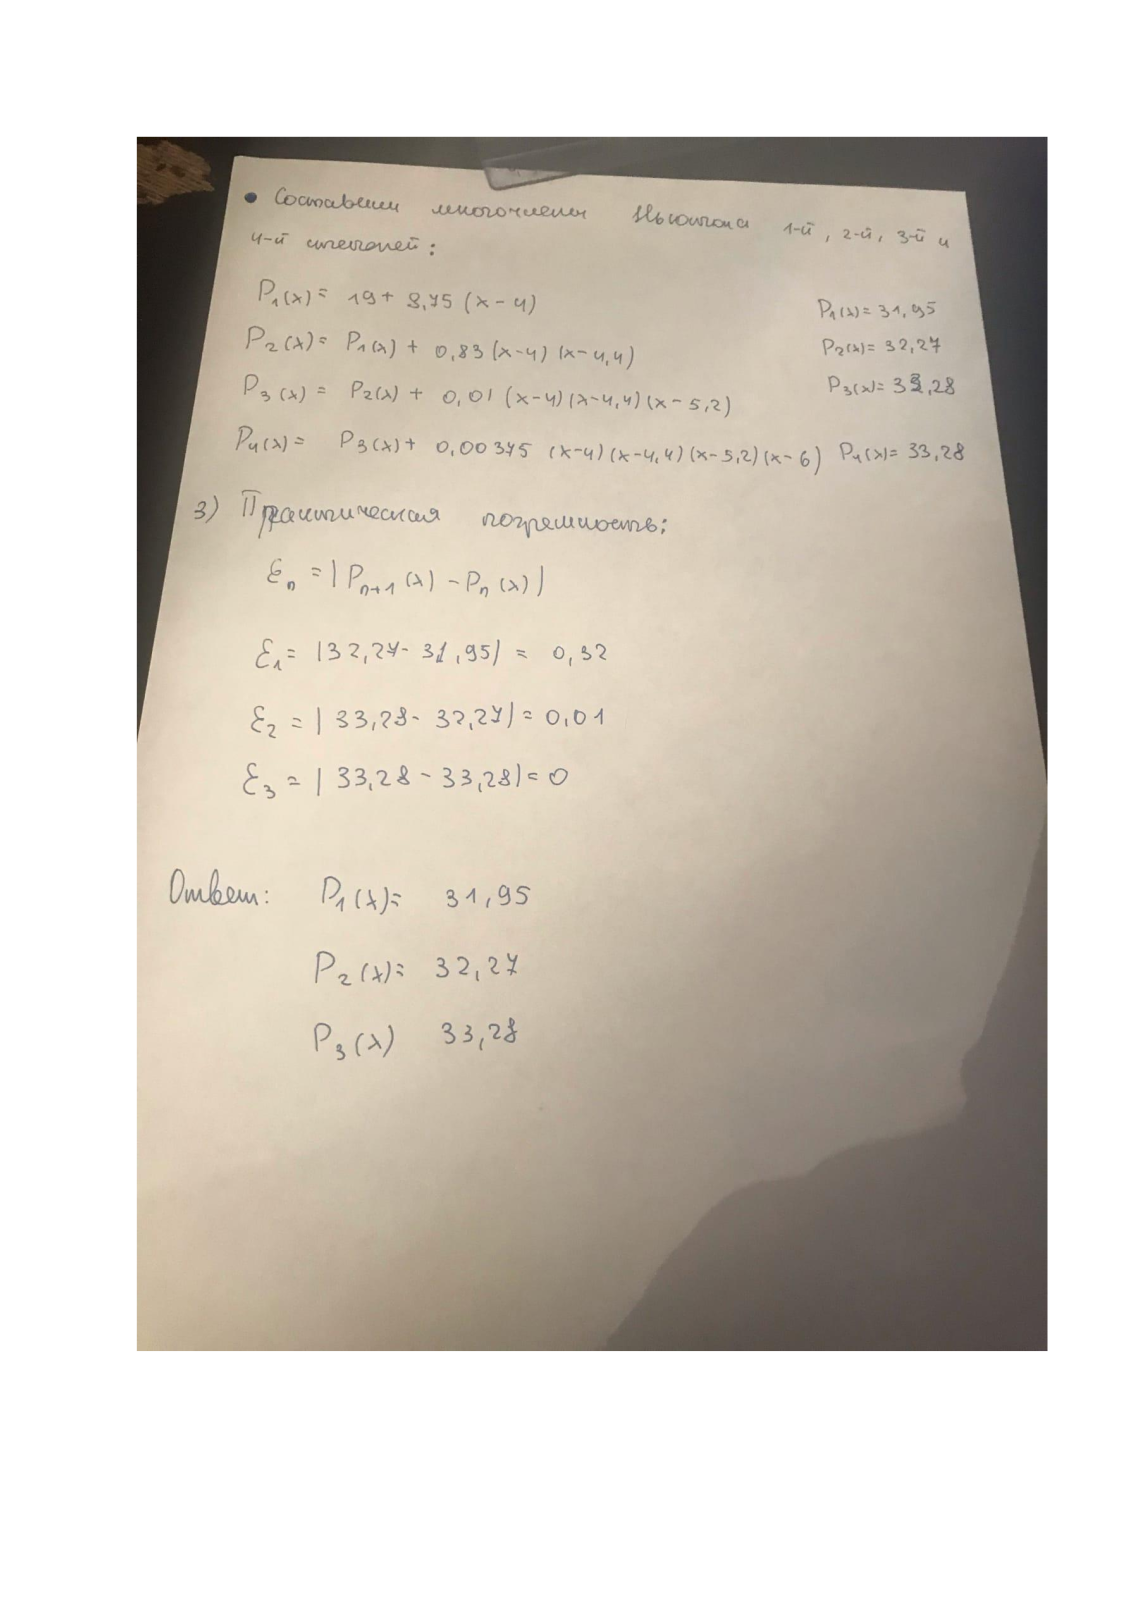 • Составим многочлены Ньютона 1-й, 2-й, 3-й и
4-й степеней:
P₁(x) = 19 + 9,75 (x-4) P₁(x) = 31,95
P₂(x) = P₁(x) + 0,83 (x-4) (x-4,4) P₂(x) = 32,27
P₃(x) = P₂(x) + 0,01 (x-4) (x-4,4) (x-5,2) P₃(x) = 33,28
P₄(x) = P₃(x) + 0,00375 (x-4) (x-4,4) (x-5,2) (x-6) P₄(x) = 33,28
3) Практическая погрешность:
Ɛₙ = | Pₙ₊₁ (x) - Pₙ (x) |
Ɛ₁ = |32,27 - 31,95| = 0,32
Ɛ₂ = | 33,28 - 32,27| = 0,01
Ɛ₃ = | 33,28 - 33,28| = 0
Ответ: P₁(x) = 31,95
P₂(x) = 32,27
P₃(x) 33,28